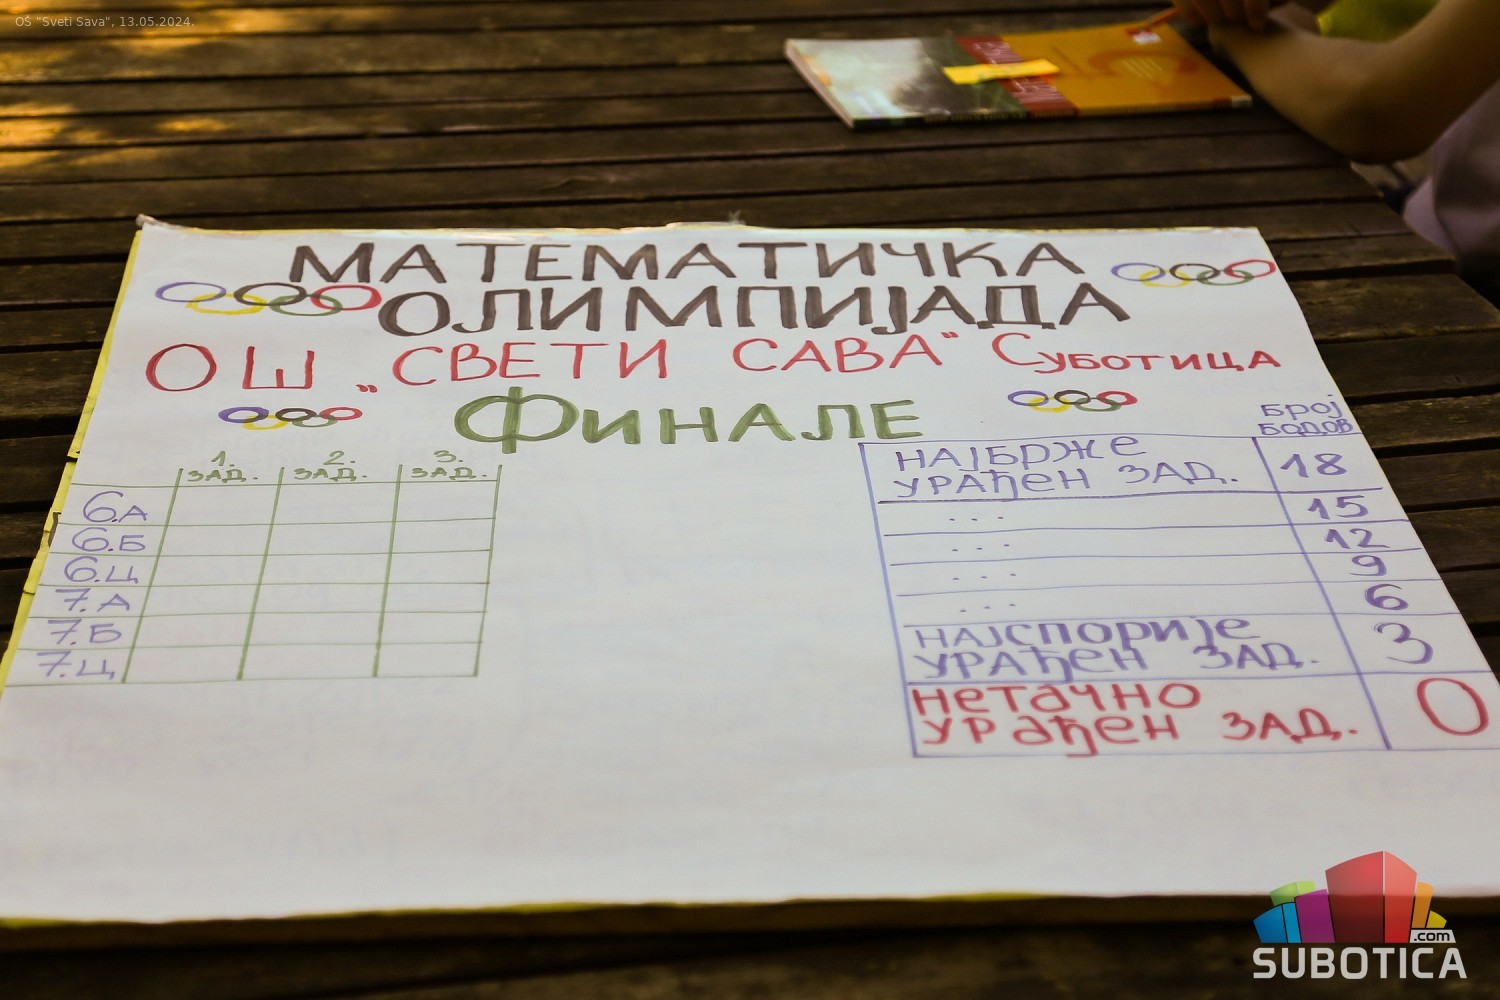 OŠ "Sveti Sava", 13.05.2024.
МАТЕМАТИЧКА
ОЛИМПИЈАДА
ОШ „СВЕТИ САВА“ СУБОТИЦА
ФИНАЛЕ
1. 2. 3.
ЗАД. ЗАД. ЗАД.
6.А
6.Б
6.Ц
7.А
7.Б
7.Ц
БРОЈ
БОДОВА
НАЈБРЖЕ
УРАЂЕН ЗАД. 18
... 15
... 12
... 9
... 6
НАЈСПОРИЈЕ
УРАЂЕН ЗАД. 3
НЕТАЧНО
УРАЂЕН ЗАД. 0
.com
SUBOTICA